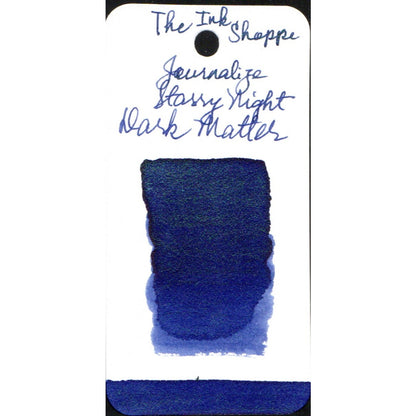 The Ink
Shoppe
Journalize
Starry Night
Dark Matter